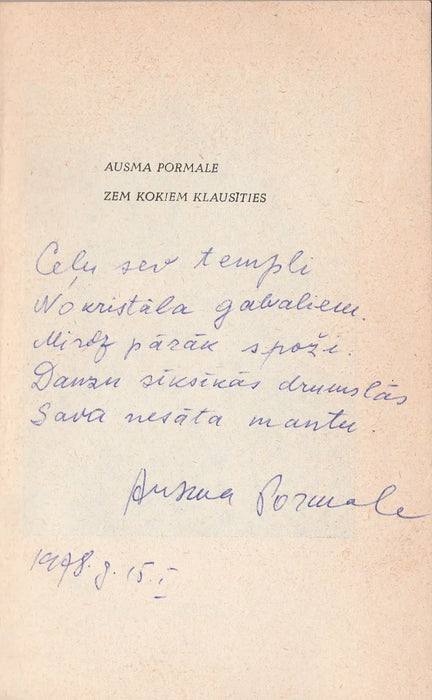 AUSMA PORMALE
ZEM KOKIEM KLAUSĪTIES
Ceļu sev templi
No kristāla gabaliem.
Mirdz pārāk spoži.
Dauzu sīksīkās drumslās
Sava nesāta mantu.
Ausma Pormale
1978. g. 15. I